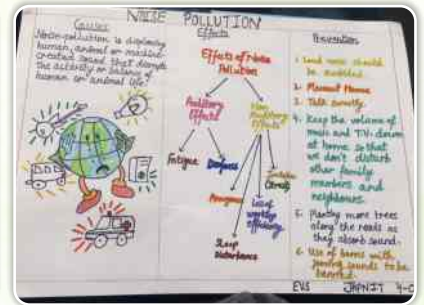 NOISE POLLUTION
Causes
Noise-pollution is displeasing
human, animal or machine
created sound that disrupts
the activity or balance of
human or animal life.
Effects
Effects of Noise
Pollution
Auditory
Effects
Non
Auditory
Effects
Fatigue
Deafness
Annoyance
Sleep
Disturbance
Loss of
working
efficiency
Prevention
1. Loud noise should
be avoided.
3. Talk
4. Keep the volume of
music and T.V. down
at home so that
we don't disturb
other family
members and
neighbours.
5. Planting more trees
along the roads as
they absorb sound.
6. Use of horns with
sounds to be
banned.
EVS JAPNIT 4-C